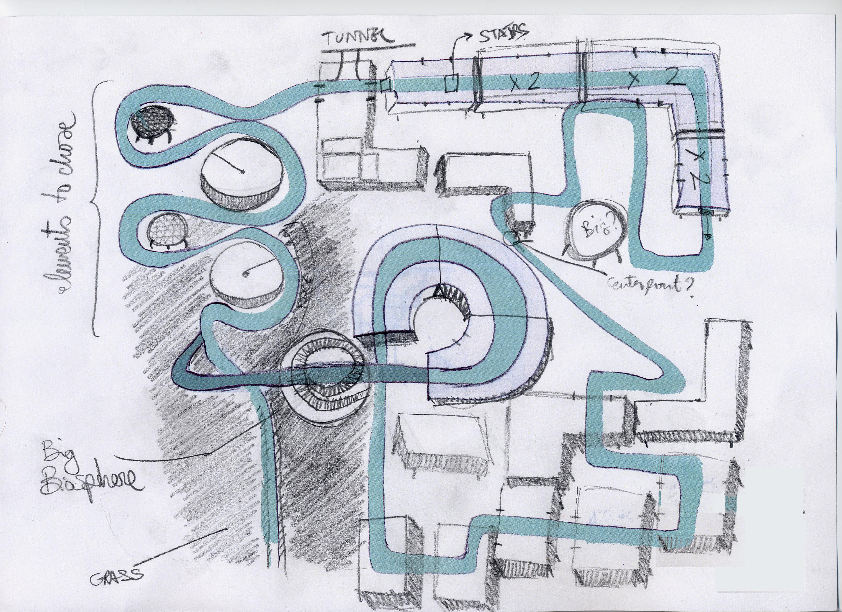 TUNNEL
STAIRS
x 2
x 2
x 2
elements to chose
Big?
Centerpoint?
Big
Biosphere
GRASS